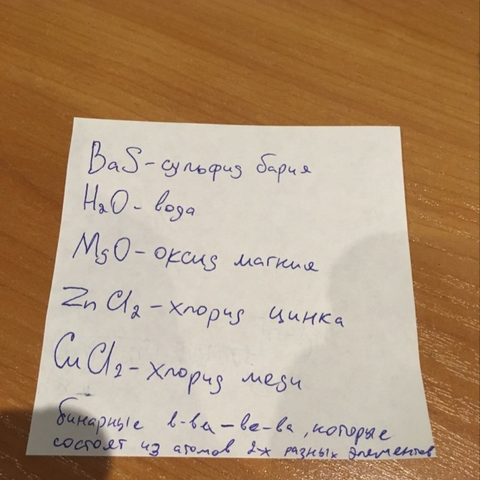 BaS - сульфид бария
H₂O - вода
MgO - оксид магния
ZnCl₂ - хлорид цинка
CuCl₂ - хлорид меди
бинарные в-ва - ве-ва, которые
состоят из атомов 2х разных элементов